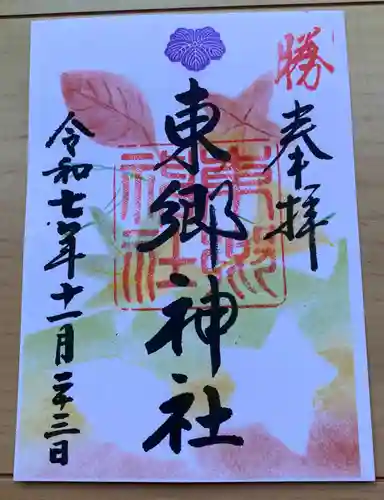 勝
奉拝
東郷神社
令和七年十一月二十三日
東郷神社